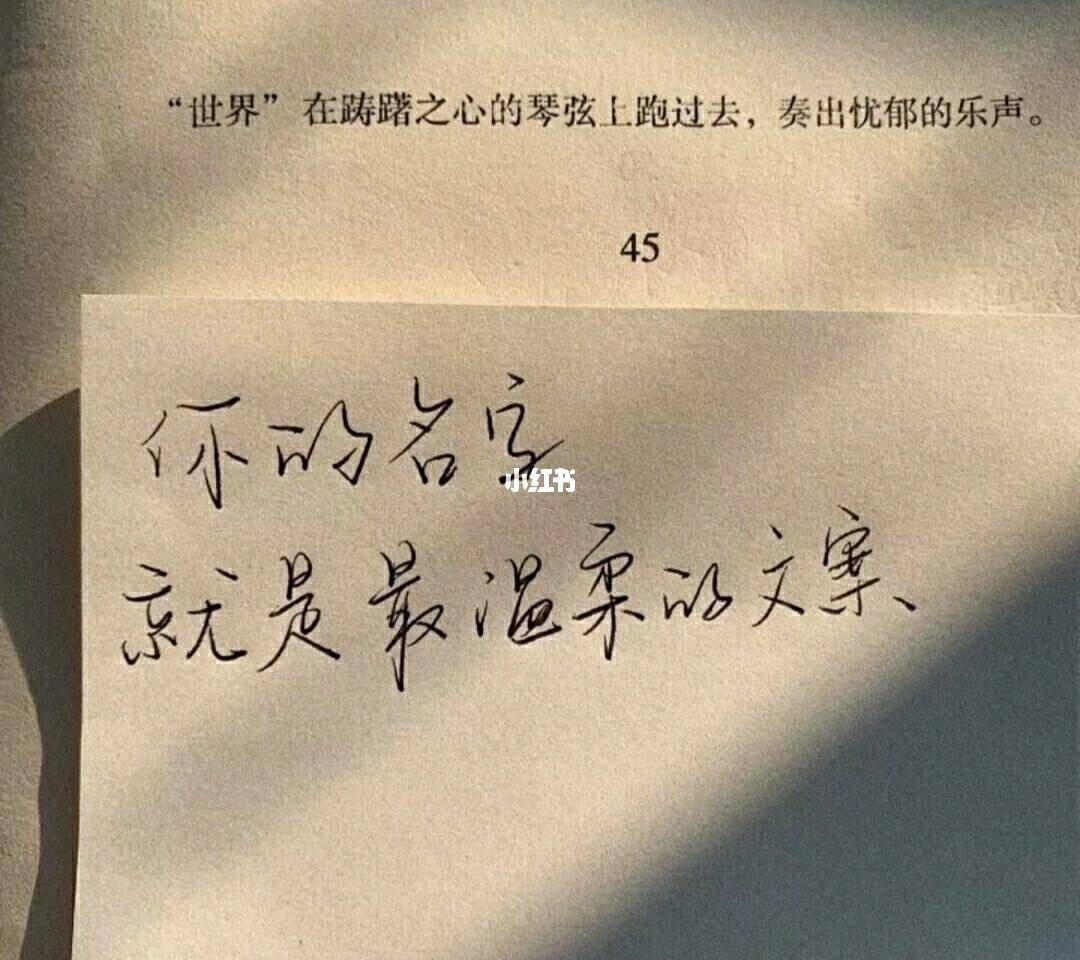 “世界”在踌躇之心的琴弦上跑过去，奏出忧郁的乐声。
45
你的名字
小红书
就是最温柔的文案、